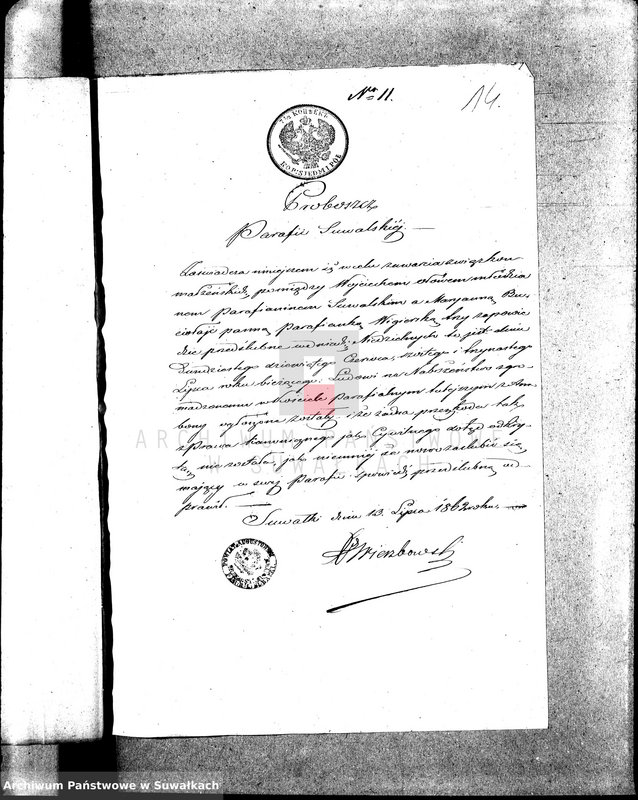 Nro 11.
14.
7½ KOPIEJEK
KOP: SIEDM I PÓŁ
Proboszcz
Parafii Suwalskiéj
Zaświadcza niniejszem iż w celu zawarcia związku
małżeńskiego pomiędzy Wojciechem młodzia
nem Parafianinem Suwalskim a Maryanną
panną Parafianką Wigierską, trzy zapowie
dzie przedślubne w dniach Niedzielnych to jest dnia
dwudziestego dziewiątego Czerwca, szóstego i trzynastego
Lipca roku bieżącego, Ludowi na Nabożeństwo zgro-
madzonemu w Kościele parafialnym tutejszym z Am
bony ogłoszone zostały, i że żadna przeszkoda tak
z Prawa Kanonicznego jak Cywilnego dotąd odkry-
tą nie została, jak niemniej że nowo zaślubić się
mający w swej Parafii spowiedź przedślubną od
prawił.
Suwałki dnia 13. Lipca 1862 roku.
Wierzbowski
ARCHIWUM PAŃSTWOWE
W SUWAŁKACH
Archiwum Państwowe w Suwałkach